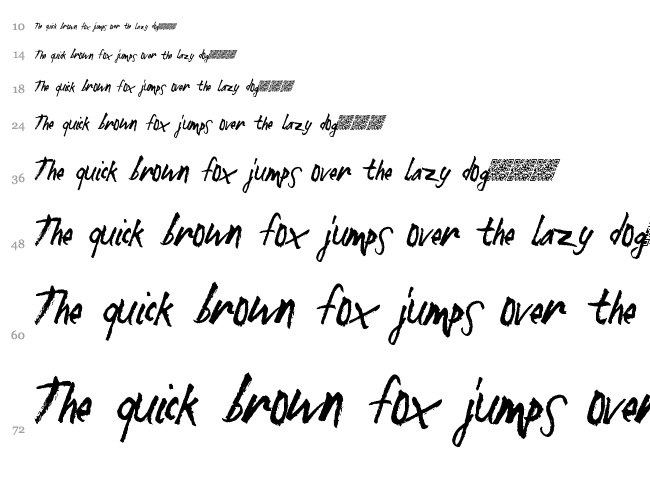 10 The quick brown fox jumps over the lazy dog
14 The quick brown fox jumps over the lazy dog
18 The quick brown fox jumps over the lazy dog
24 The quick brown fox jumps over the lazy dog
36 The quick brown fox jumps over the lazy dog
48 The quick brown fox jumps over the lazy dog
60 The quick brown fox jumps over the
72 The quick brown fox jumps over